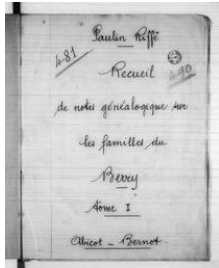 Paulin Riffé
481
Recueil
490
de notes généalogique sur
les familles du
Berry
Tome I
Abicot - Bernot